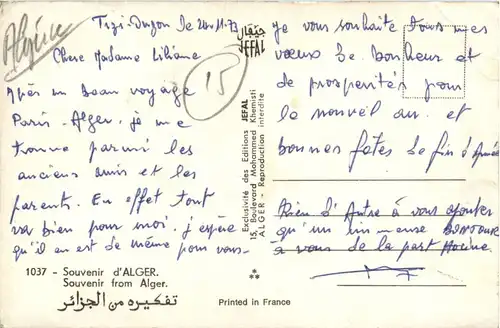 Algérie
Tizi-Ouzou le 20.11.73
Chere Madame Liliane
Après un beau voyage
Paris - Alger, je me
trouve parmi les
anciens amis et les
parents. En effet tout
va bien pour moi j'espère
qu'il en est de même pour vous-
15
جيفال
JEFAL
Exclusivité des Editions JEFAL
15, Boulevard Mohammed Khemisti
ALGER - Reproduction interdite
Je vous souhaite tous mes
vœux de bonheur et
de prosperités pour
le nouvel an. et
bonnes fêtes de fin d'Année
Rien d'Autre à vous ajouter
qu'un immense BONJOUR
à vous de la part
1037 - Souvenir d'ALGER.
Souvenir from Alger.
تفكيره من الجزائر
*
**
Printed in France